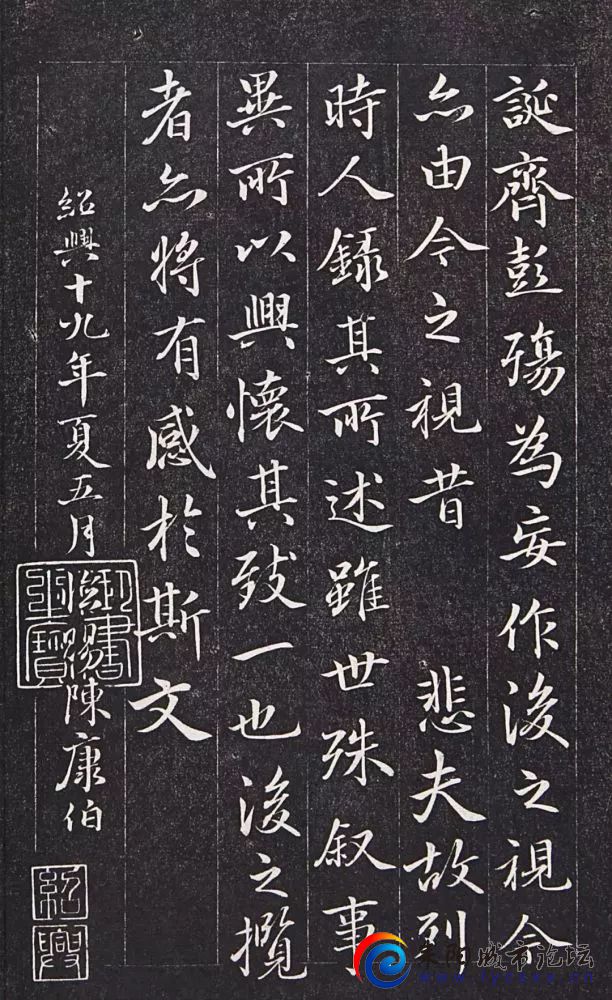 誕齊彭殤為妄作後之視今
亦由今之視昔 悲夫故列
時人錄其所述雖世殊叙事
異所以興懷其致一也後之攬
者亦將有感於斯文
紹興十九年夏五月 陳康伯
紹興
耒阳城市论坛